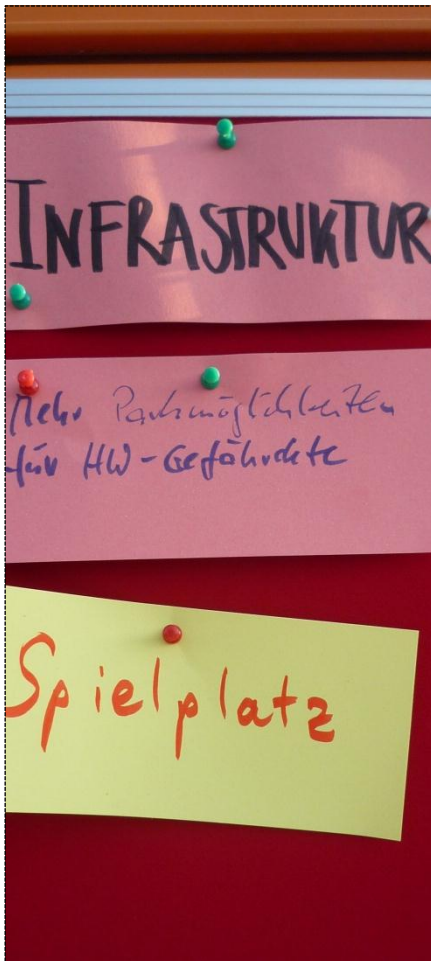 INFRASTRUKTUR
Mehr Parkmöglichkeiten
für HW-Gefährdete
Spielplatz